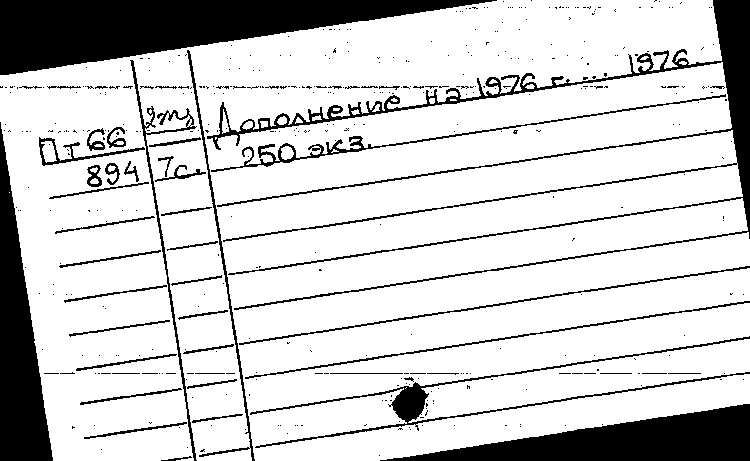 Пт66 Дополнение на 1976 г. ... 1976.
894 7с. 250 экз.